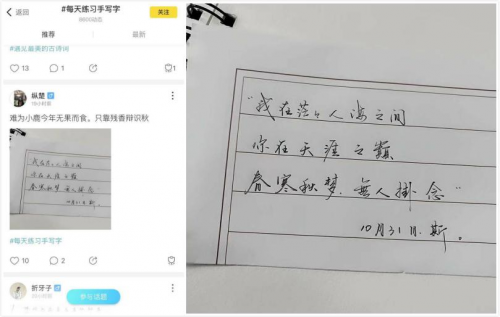 返回
#每天练习手写字
8600动态
关注
推荐
最新
#遇见最美的古诗词
13
1
1
纵楚
19小时前
难为小鹿今年无果而食。只靠残香辩识秋
我在茫々人海之间
你在天涯之巅
春寒秋梦.無人掛念
10月31日.斯.
#每天练习手写字
10
2
2
折牙子
参与话题
"我在茫々人海之间
你在天涯之巅
春寒秋梦.無人掛念"
10月31日.斯.